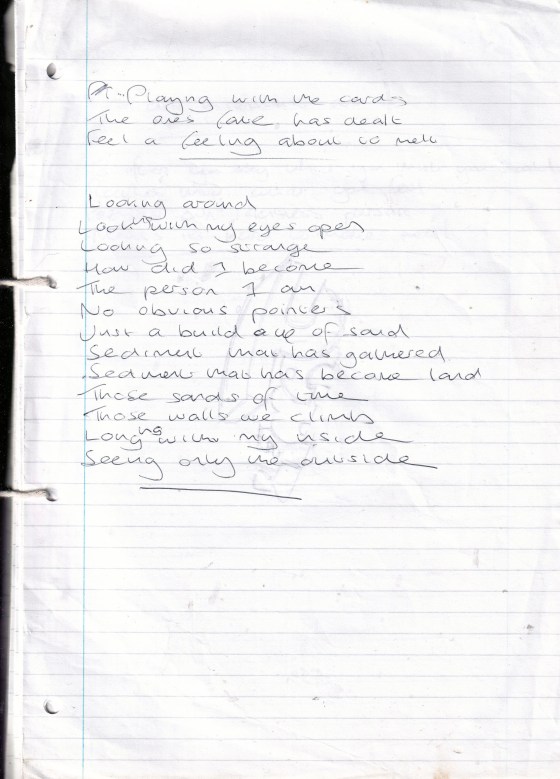 Playing with the cards
The ones fate has dealt
Feel a feeling about to melt
Looking around
Looking with my eyes open
Looking so strange
How did I become
The person I am
No obvious pointers
Just a build up of sand
Sediment that has gathered
Sediment that has become land
Those sands of time
Those walls we climb
Longing with my inside
Seeing only the outside